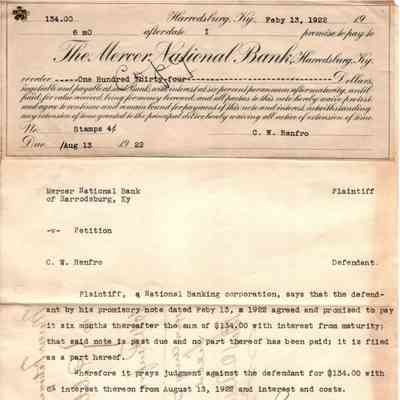 134.00 Harrodsburg, Ky. Feby 13, 1922 19
6 mO after date I promise to pay to
The Mercer National Bank, Harrodsburg, Ky.
or order -----One Hundred Thirty-four------------------------Dollars,
negotiable and payable at said Bank, with interest at six per cent per annum after maturity, until
paid, for value received, being for money loaned, and all parties to this note hereby waive protest
and agree to continue and remain bound for payment of this note and interest, notwithstanding
any extension of time granted to the principal debtor hereby waiving all notice of extension of time.
No. Stamps 4¢ C. W. Renfro
Due /Aug 13 19 22
COPY
Mercer National Bank Plaintiff
of Harrodsburg, Ky
-v- Petition
C. W. Renfro Defendant.
Plaintiff, a National Banking corporation, says that the defend-
ant by his promissory note dated Feby 13, 1922 agreed and promised to pay
it six months thereafter the sum of $134.00 with interest from maturity;
that said note is past due and no part thereof has been paid; it is filed
as a part hereof.
Wherefore it prays judgment against the defendant for $134.00 with
6% interest thereon from August 13, 1922 and interest and costs.